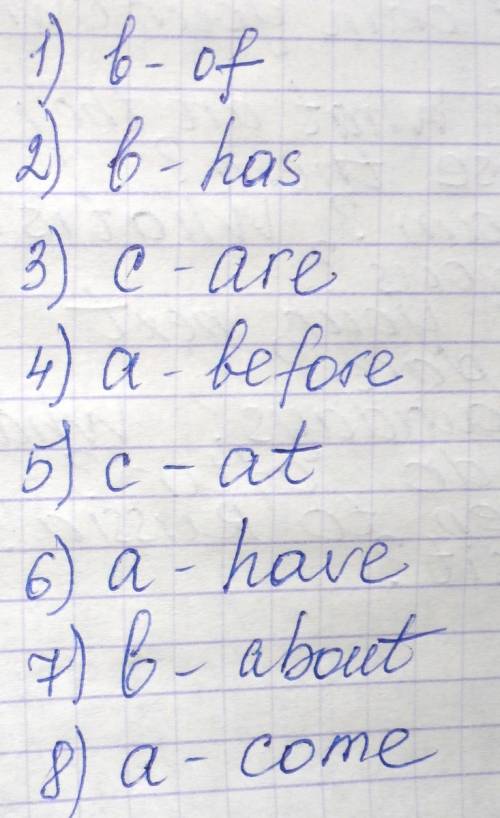 1) b - of
2) b - has
3) c - are
4) a - before
5) c - at
6) a - have
7) b - about
8) a - come